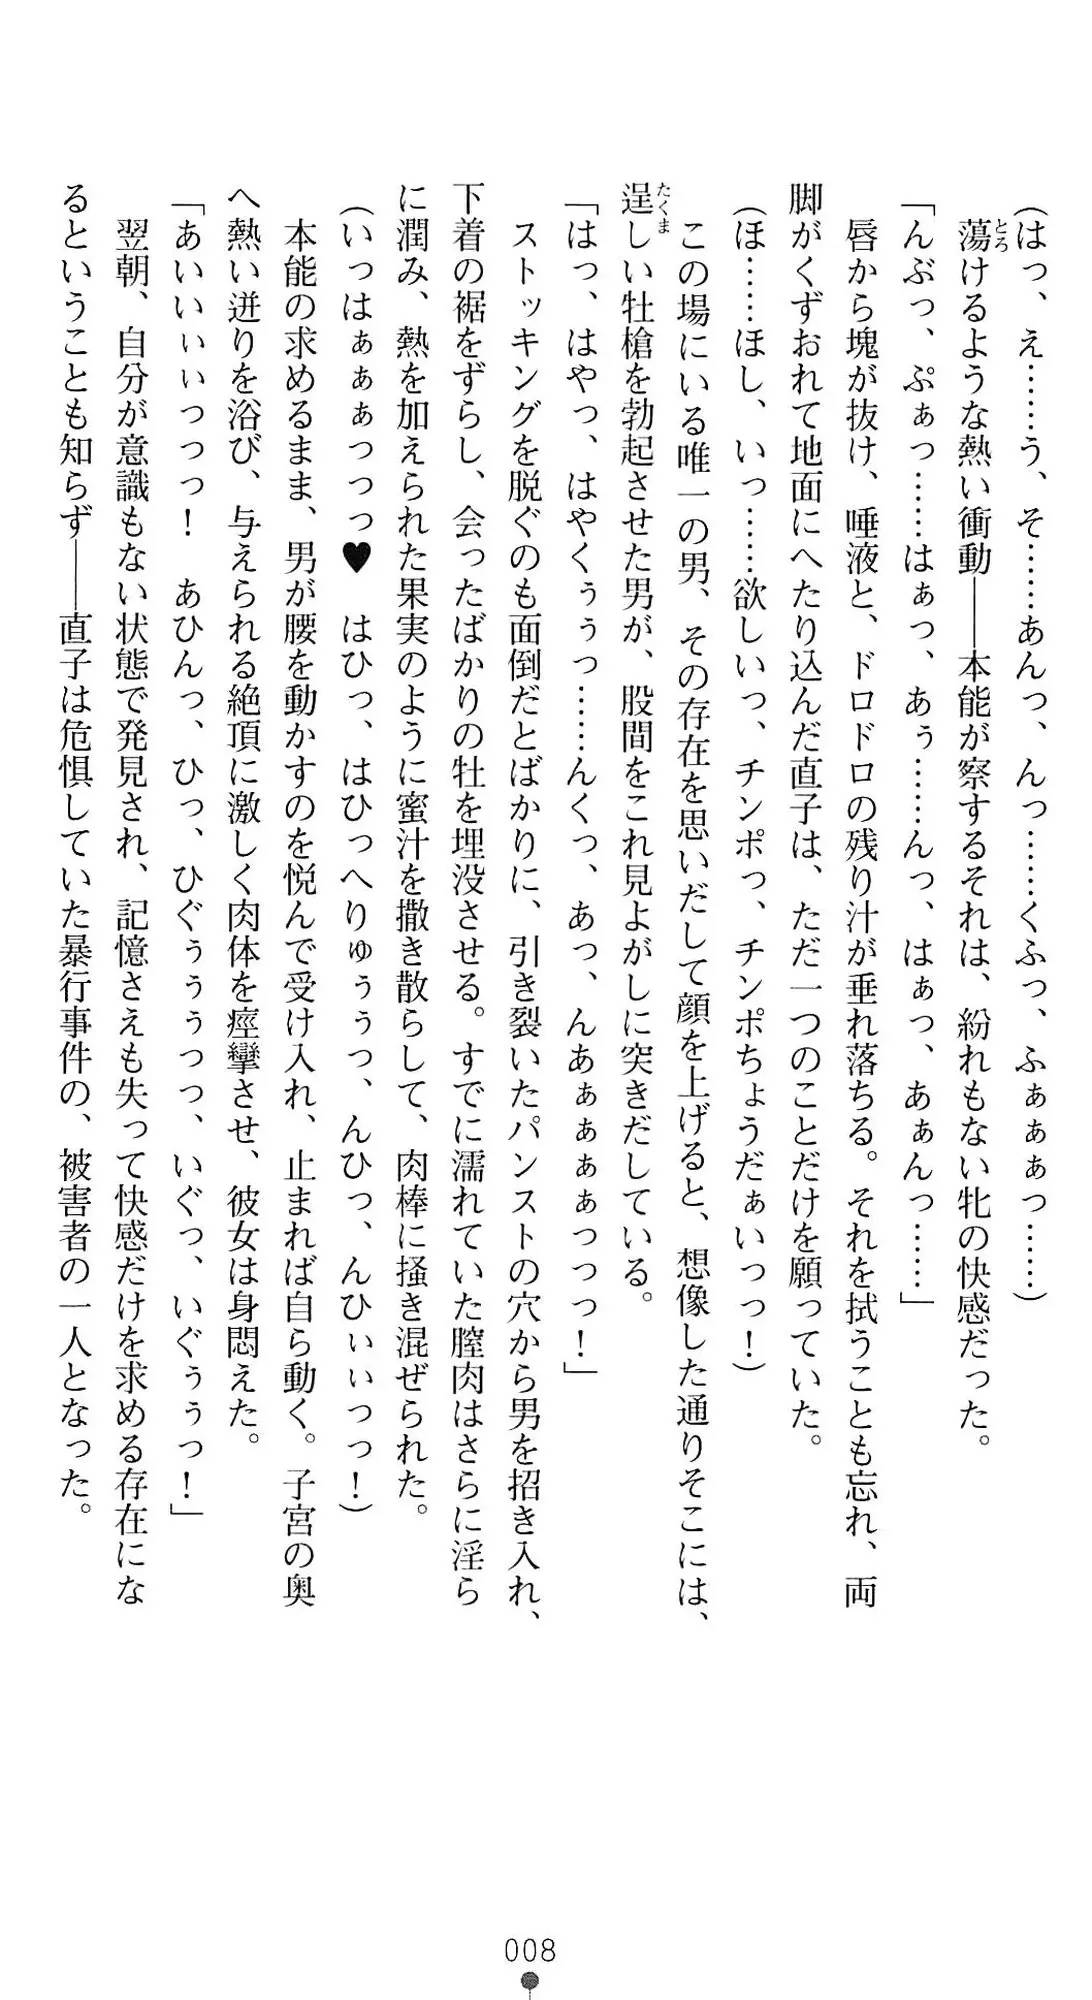 （はっ、え……う、そ……あんっ、んっ……くふっ、ふぁぁぁっ……）
蕩けるような熱い衝動――本能が察するそれは、紛れもない牝の快感だった。
「んぶっ、ぷぁっ……はぁっ、あぅ……んっ、はぁっ、あぁんっ……」
唇から塊が抜け、唾液と、ドロドロの残り汁が垂れ落ちる。それを拭うことも忘れ、両
脚がくずおれて地面にへたり込んだ直子は、ただ一つのことだけを願っていた。
（ほ……ほし、いっ……欲しいっ、チンポっ、チンポちょうだぁいっっ！）
この場にいる唯一の男、その存在を思いだして顔を上げると、想像した通りそこには、
逞しい牡槍を勃起させた男が、股間をこれ見よがしに突きだしている。
「はっ、はやっ、はやくぅぅっ……んくっ、あっ、んあぁぁぁぁっっっ！」
ストッキングを脱ぐのも面倒だとばかりに、引き裂いたパンストの穴から男を招き入れ、
下着の裾をずらし、会ったばかりの牡を埋没させる。すでに濡れていた膣肉はさらに淫ら
に潤み、熱を加えられた果実のように蜜汁を撒き散らして、肉棒に掻き混ぜられた。
（いっはぁぁぁっっっ♥　はひっ、はひっへりゅぅぅっ、んひっ、んひぃぃっっ！）
本能の求めるまま、男が腰を動かすのを悦んで受け入れ、止まれば自ら動く。子宮の奥
へ熱い迸りを浴び、与えられる絶頂に激しく肉体を痙攣させ、彼女は身悶えた。
「あいいぃぃっっっ！　あひんっ、ひっ、ひぐぅぅぅっっ、いぐっ、いぐぅぅっ！」
翌朝、自分が意識もない状態で発見され、記憶さえも失って快感だけを求める存在にな
るということも知らず――直子は危惧していた暴行事件の、被害者の一人となった。
とろ
たくま
008